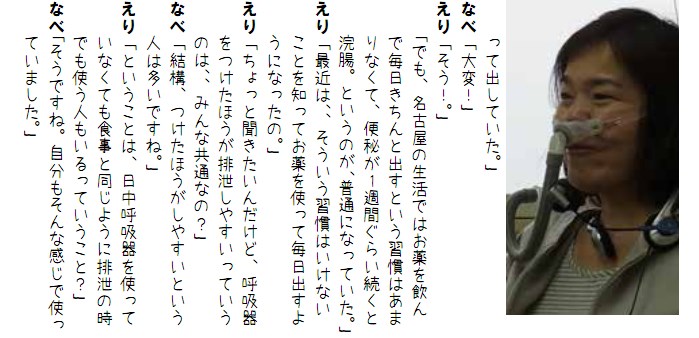 って出していた。」
なべ「大変！」
えり「そう！。」
「でも、名古屋の生活ではお薬を飲ん
で毎日きちんと出すという習慣はあま
りなくて、便秘が１週間ぐらい続くと
浣腸。というのが、普通になっていた。」
えり「最近は、、そういう習慣はいけない
ことを知ってお薬を使って毎日出すよ
うになったの。」
えり「ちょっと聞きたいんだけど、呼吸器
をつけたほうが排泄しやすいっていう
のは、、みんな共通なの？」
なべ「結構、つけたほうがしやすいという
人は多いですね。」
えり「ということは、日中呼吸器を使って
いなくても食事と同じように排泄の時
でも使う人もいるっていうこと？」
なべ「そうですね。自分もそんな感じで使っ
ていました。」